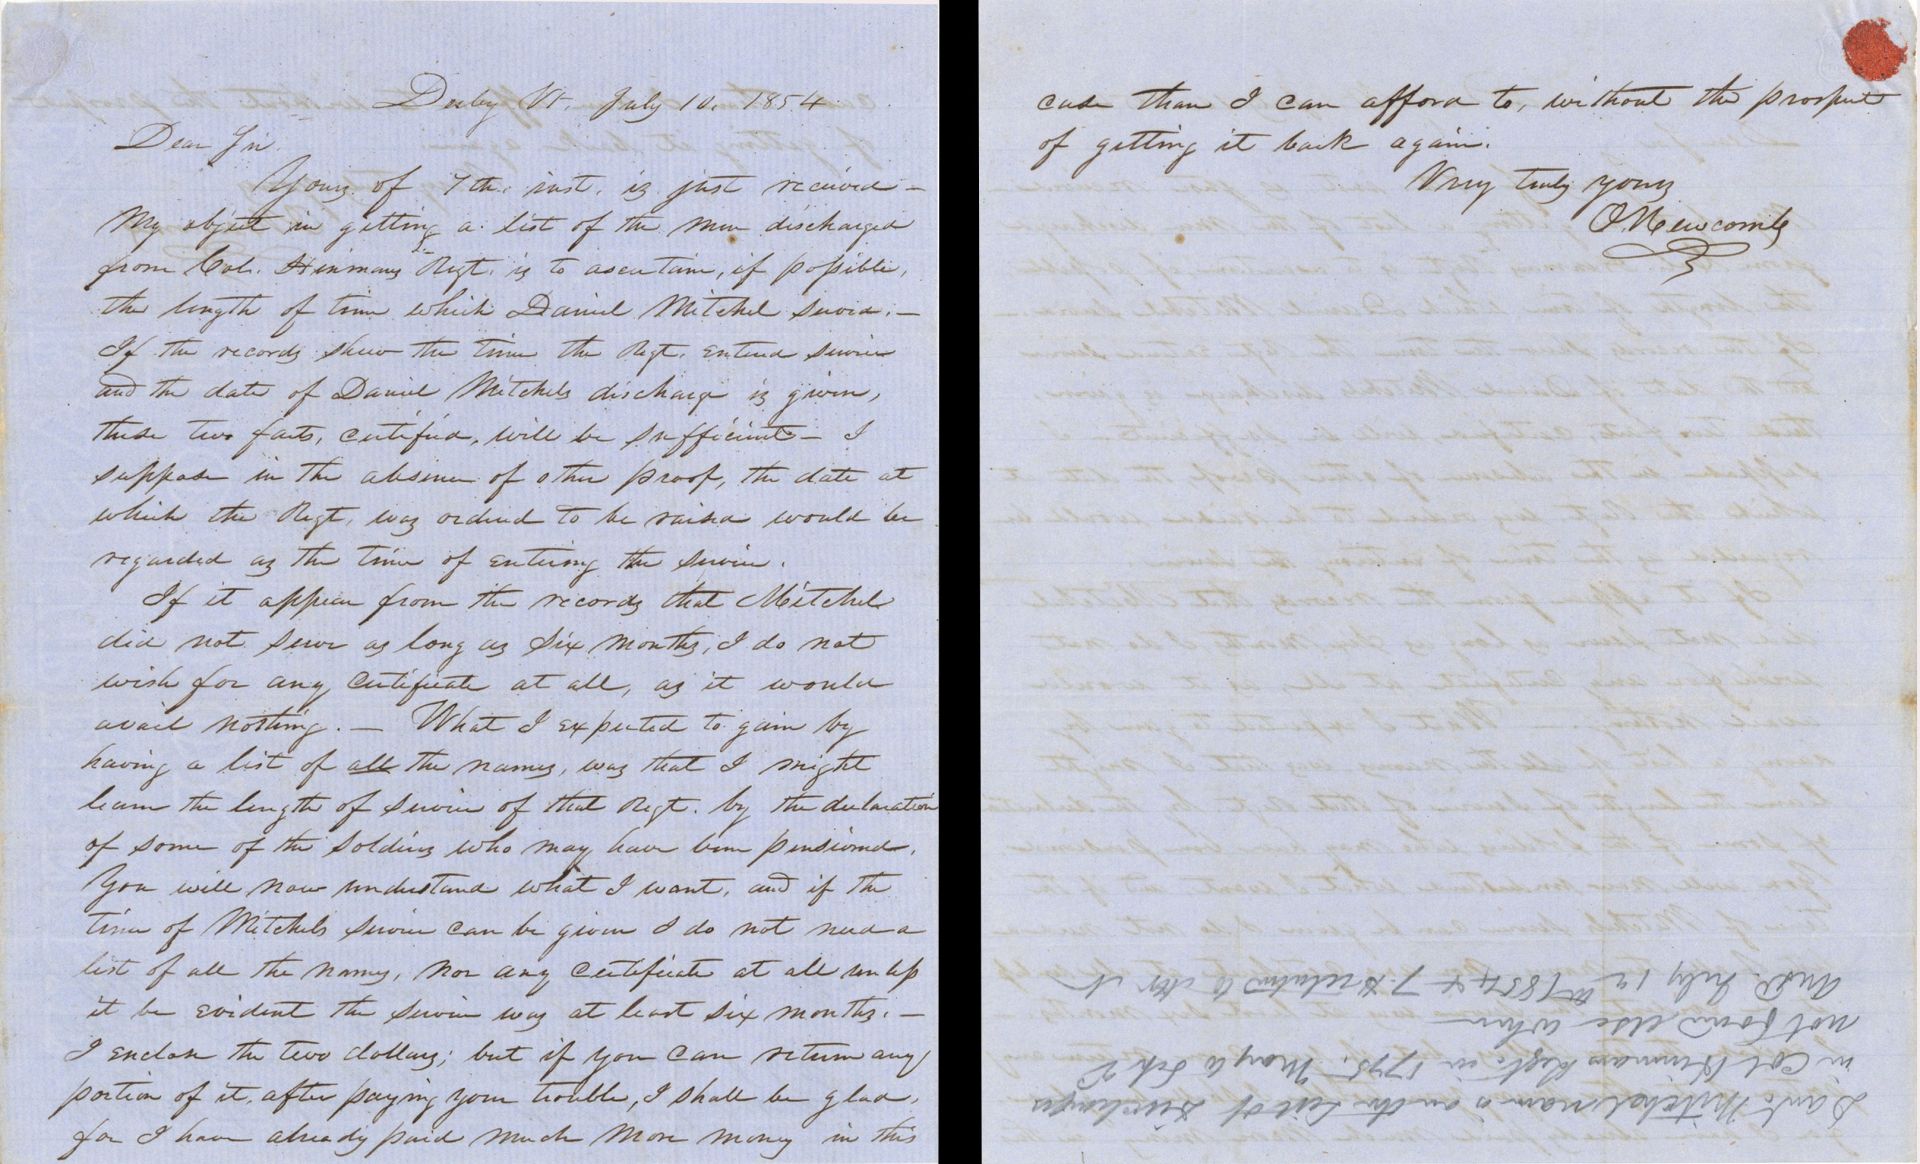 Derby Vt. July 10. 1854.
Dear Sir.
Yours of 7th. inst. is just received –
My object in getting a list of the men discharged
from Col. Hinmans Regt. is to ascertain, if possible,
the length of time which Daniel Mitchel served. –
If the records shew the time the Regt. entered service
and the date of Daniel Mitchels discharge is given,
these two facts, certified, will be sufficient – I
suppose in the absence of other proof, the date at
which the Regt. was ordered to be raised would be
regarded as the time of entering the service.
If it appear from the records that Mitchel
did not serve as long as six months, I do not
wish for any certificate at all, as it would
avail nothing. – What I expected to gain by
having a list of all the names, was that I might
learn the length of service of that Regt. by the declaration
of some of the soldiers who may have been pensioned.
You will now understand what I want, and if the
time of Mitchels service can be given I do not need a
list of all the names, nor any certificate at all unless
it be evident the service was at least six months. –
I enclose the two dollars; but if you can return any
portion of it, after paying your trouble, I shall be glad,
for I have already paid much more money in this
case than I can afford to, without the prospect
of getting it back again.
Very truly yours
O Newcomb
Danl. Mitchel name is on the List of discharges
in Col Hinmans Regt. in 1775.
not found else where
Ansd. July 12 1854